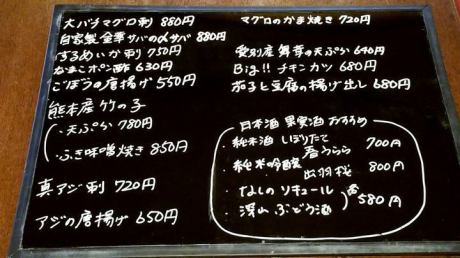 大バチマグロ刺 880円
自家製 金華サバの〆サバ 880円
するめいか刺 750円
なまこポン酢 630円
ごぼうの唐揚げ 550円
熊本産 竹の子
・天ぷら 780円
・ふき味噌焼き 850円
真アジ刺 720円
アジの唐揚げ 650円
マグロのかま焼き 720円
愛別産 舞茸の天ぷら 640円
Big!! チキンカツ 680円
茄子と豆腐の揚げ出し 680円
日本酒 果実酒 おすすめ
・純米酒 しぼりたて
春うらら 700円
・純米吟醸
出羽桜 800円
・なしのリキュール
・深山ぶどう酒 580円